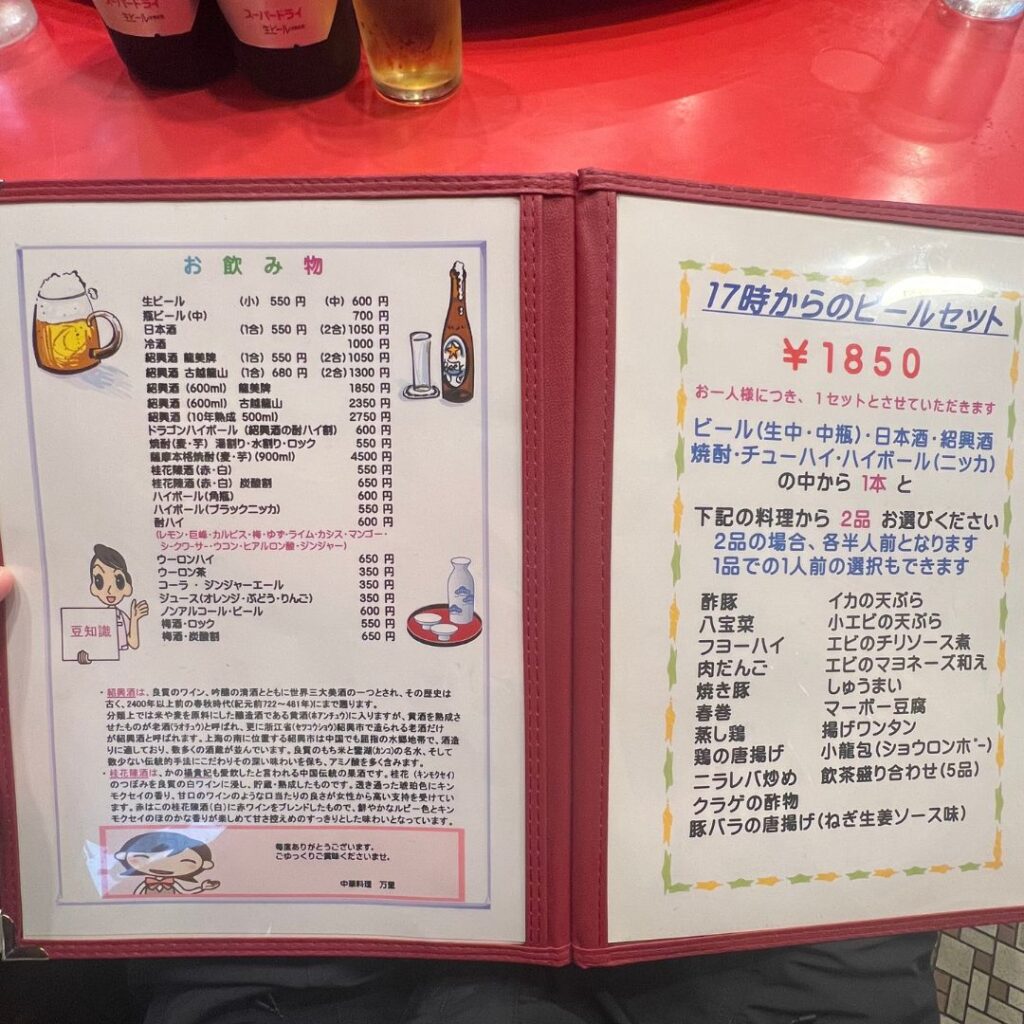 スーパードライ
生ビール
スーパードライ
生ビール
お飲み物
生ビール (小) 550 円 (中) 600 円
瓶ビール(中) 700 円
日本酒 (1合) 550 円 (2合)1050 円
冷酒 1000 円
紹興酒 龍美牌 (1合) 550 円 (2合)1050 円
紹興酒 古越龍山 (1合) 680 円 (2合)1300 円
紹興酒 (600ml) 龍美牌 1850 円
紹興酒 (600ml) 古越龍山 2350 円
紹興酒 (10年熟成 500ml) 2750 円
ドラゴンハイボール (紹興酒の酎ハイ割) 600 円
焼酎(麦・芋) 湯割り・水割り・ロック 550 円
薩摩本格焼酎(麦・芋)(900ml) 4500 円
桂花陳酒(赤・白) 550 円
桂花陳酒(赤・白) 炭酸割 650 円
ハイボール(角瓶) 600 円
ハイボール(ブラックニッカ) 550 円
酎ハイ 600 円
(レモン・巨峰・カルピス・梅・ゆず・ライム・カシス・マンゴー・
シークワーサー・ウコン・ヒアルロン酸・ジンジャー)
ウーロンハイ 650 円
ウーロン茶 350 円
コーラ ・ ジンジャーエール 350 円
ジュース(オレンジ・ぶどう・りんご) 350 円
ノンアルコール・ビール 600 円
梅酒・ロック 550 円
梅酒・炭酸割 650 円
豆知識
・紹興酒は、良質のワイン、吟醸の清酒とともに世界三大美酒の一つとされ、その歴史は
古く、2400年以上前の春秋時代(紀元前722~481年)にまで遡ります。
分類上では米や麦を原料にした醸造酒である黄酒(ホアンチュウ)に入りますが、黄酒を熟成さ
せたものが老酒(ラオチュウ)と呼ばれ、更に浙江省(セツコウショウ)紹興市で造られる老酒だけ
が紹興酒と呼ばれます。上海の南に位置する紹興市は中国でも屈指の水郷地帯で、酒造
りに適しており、数多くの酒蔵が並んでいます。良質のもち米と鑒湖(カンコ)の名水、そして
数少ない伝統的手法にこだわりその深い味わいを保ち、アミノ酸を多く含みます。
・桂花陳酒は、かの楊貴妃も愛飲したと言われる中国伝統の果酒です。桂花 (キンモクセイ)
のつぼみを良質の白ワインに浸し、貯蔵・熟成したものです。透き通った琥珀色にキン
モクセイの香り、甘口のワインのような口当たりの良さが女性から高い支持を受けてい
ます。赤はこの桂花陳酒(白)に赤ワインをブレンドしたもので、鮮やかなルビー色とキン
モクセイのほのかな香りが楽しめて甘さ控えめのすっきりとした味わいとなっています。
毎度ありがとうございます。
ごゆっくりご賞味くださいませ。
中華料理 万里
17時からのビールセット
¥1850
お一人様につき、1セットとさせていただきます
ビール(生中・中瓶)・日本酒・紹興酒
焼酎・チューハイ・ハイボール(ニッカ)
の中から 1本 と
下記の料理から 2品 お選びください
2品の場合、各半人前となります
1品での1人前の選択もできます
酢豚 イカの天ぷら
八宝菜 小エビの天ぷら
フヨーハイ エビのチリソース煮
肉だんご エビのマヨネーズ和え
焼き豚 しゅうまい
春巻 マーボー豆腐
蒸し鶏 揚げワンタン
鶏の唐揚げ 小龍包(ショウロンポー)
ニラレバ炒め 飲茶盛り合わせ(5品)
クラゲの酢物
豚バラの唐揚げ(ねぎ生姜ソース味)